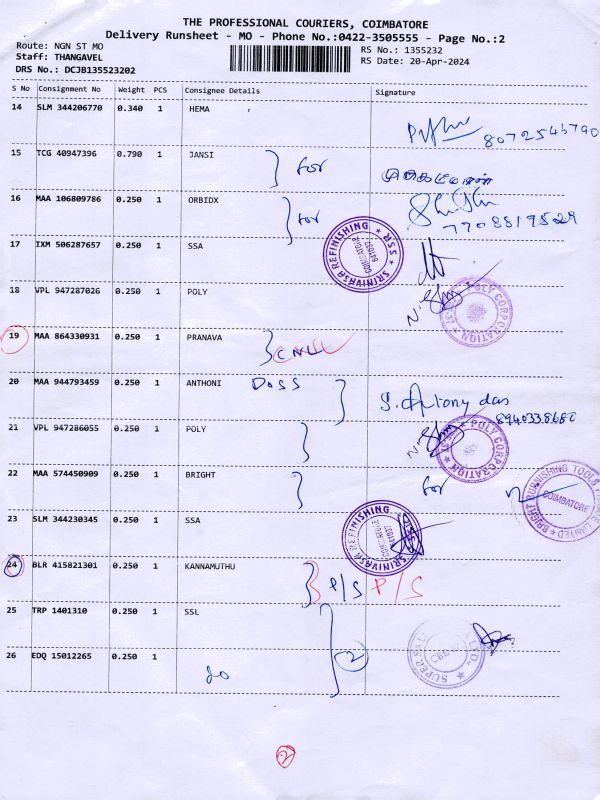 THE PROFESSIONAL COURIERS, COIMBATORE
Delivery Runsheet - MO - Phone No.:0422-3505555 - Page No.:2
Route: NGN ST MO
Staff: THANGAVEL
DRS No.: DCJB135523202
RS No.: 1355232
RS Date: 20-Apr-2024
S No Consignment No Weight PCS Consignee Details Signature
14 SLM 344206770 0.340 1 HEMA
8072545790
15 TCG 40947396 0.790 1 JANSI for
16 MAA 106809786 0.250 1 ORBIDX for
7708819529
17 IXM 506287657 0.250 1 SSA
SRINIVASA REFINISHING SSR
18 VPL 947287026 0.250 1 POLY
POLY CORPORATION
19 MAA 864330931 0.250 1 PRANAVA CNL
20 MAA 944793459 0.250 1 ANTHONI DOSS
S. Antony das
8940338680
21 VPL 947286055 0.250 1 POLY
POLY CORPORATION
22 MAA 574450909 0.250 1 BRIGHT for
BRIGHT BURNISHING TOOLS LIMITED COIMBATORE
23 SLM 344230345 0.250 1 SSA
SRINIVASA REFINISHING
24 BLR 415821301 0.250 1 KANNAMUTHU P/S P/S
25 TRP 1401310 0.250 1 SSL
SUPER
26 EDQ 15012265 0.250 1 do 2
2